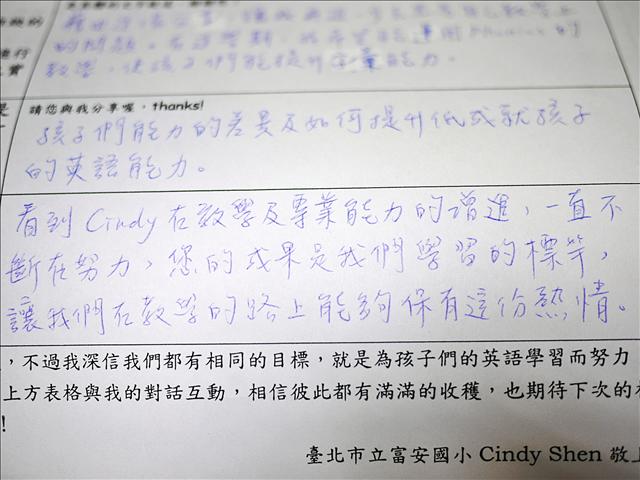 的
進行
實
的問題。在這學期,我希望能運用Phonics的
教學,使孩子們能提升字彙能力。
是
請您與我分享喔,thanks!
孩子們能力的差異及如何提升低成就孩子
的英語能力。
看到Cindy在教學及專業能力的增進,一直不
斷在努力,您的成果是我們學習的標竿,
讓我們在教學的路上能夠保有這份熱情。
,不過我深信我們都有相同的目標,就是為孩子們的英語學習而努力
上方表格與我的對話互動,相信彼此都有滿滿的收穫,也期待下次的
!
臺北市立富安國小 Cindy Shen 敬上